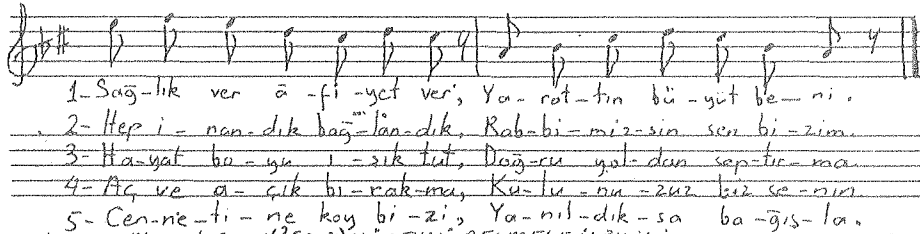 1- Sağ-lık ver â-fi-yet ver, Ya-rat-tın bü-yüt be-ni.
2- Hep i-nan-dık bağ-lan-dık, Rab-bi-miz-sin sen bi-zim.
3- Ha-yat bo-yu ı-şık tut, Doğ-ru yol-dan sap-tır-ma.
4- Aç ve a-çık bı-rak-ma, Ku-lu-nu-zuz biz se-nin
5- Cen-ne-ti-ne koy bi-zi, Ya-nıl-dık-sa ba-ğış-la.